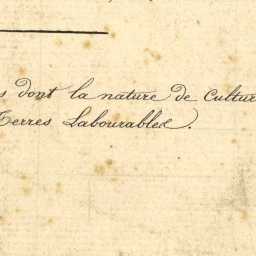 s dont la nature de Cultur
Terres Labourables.